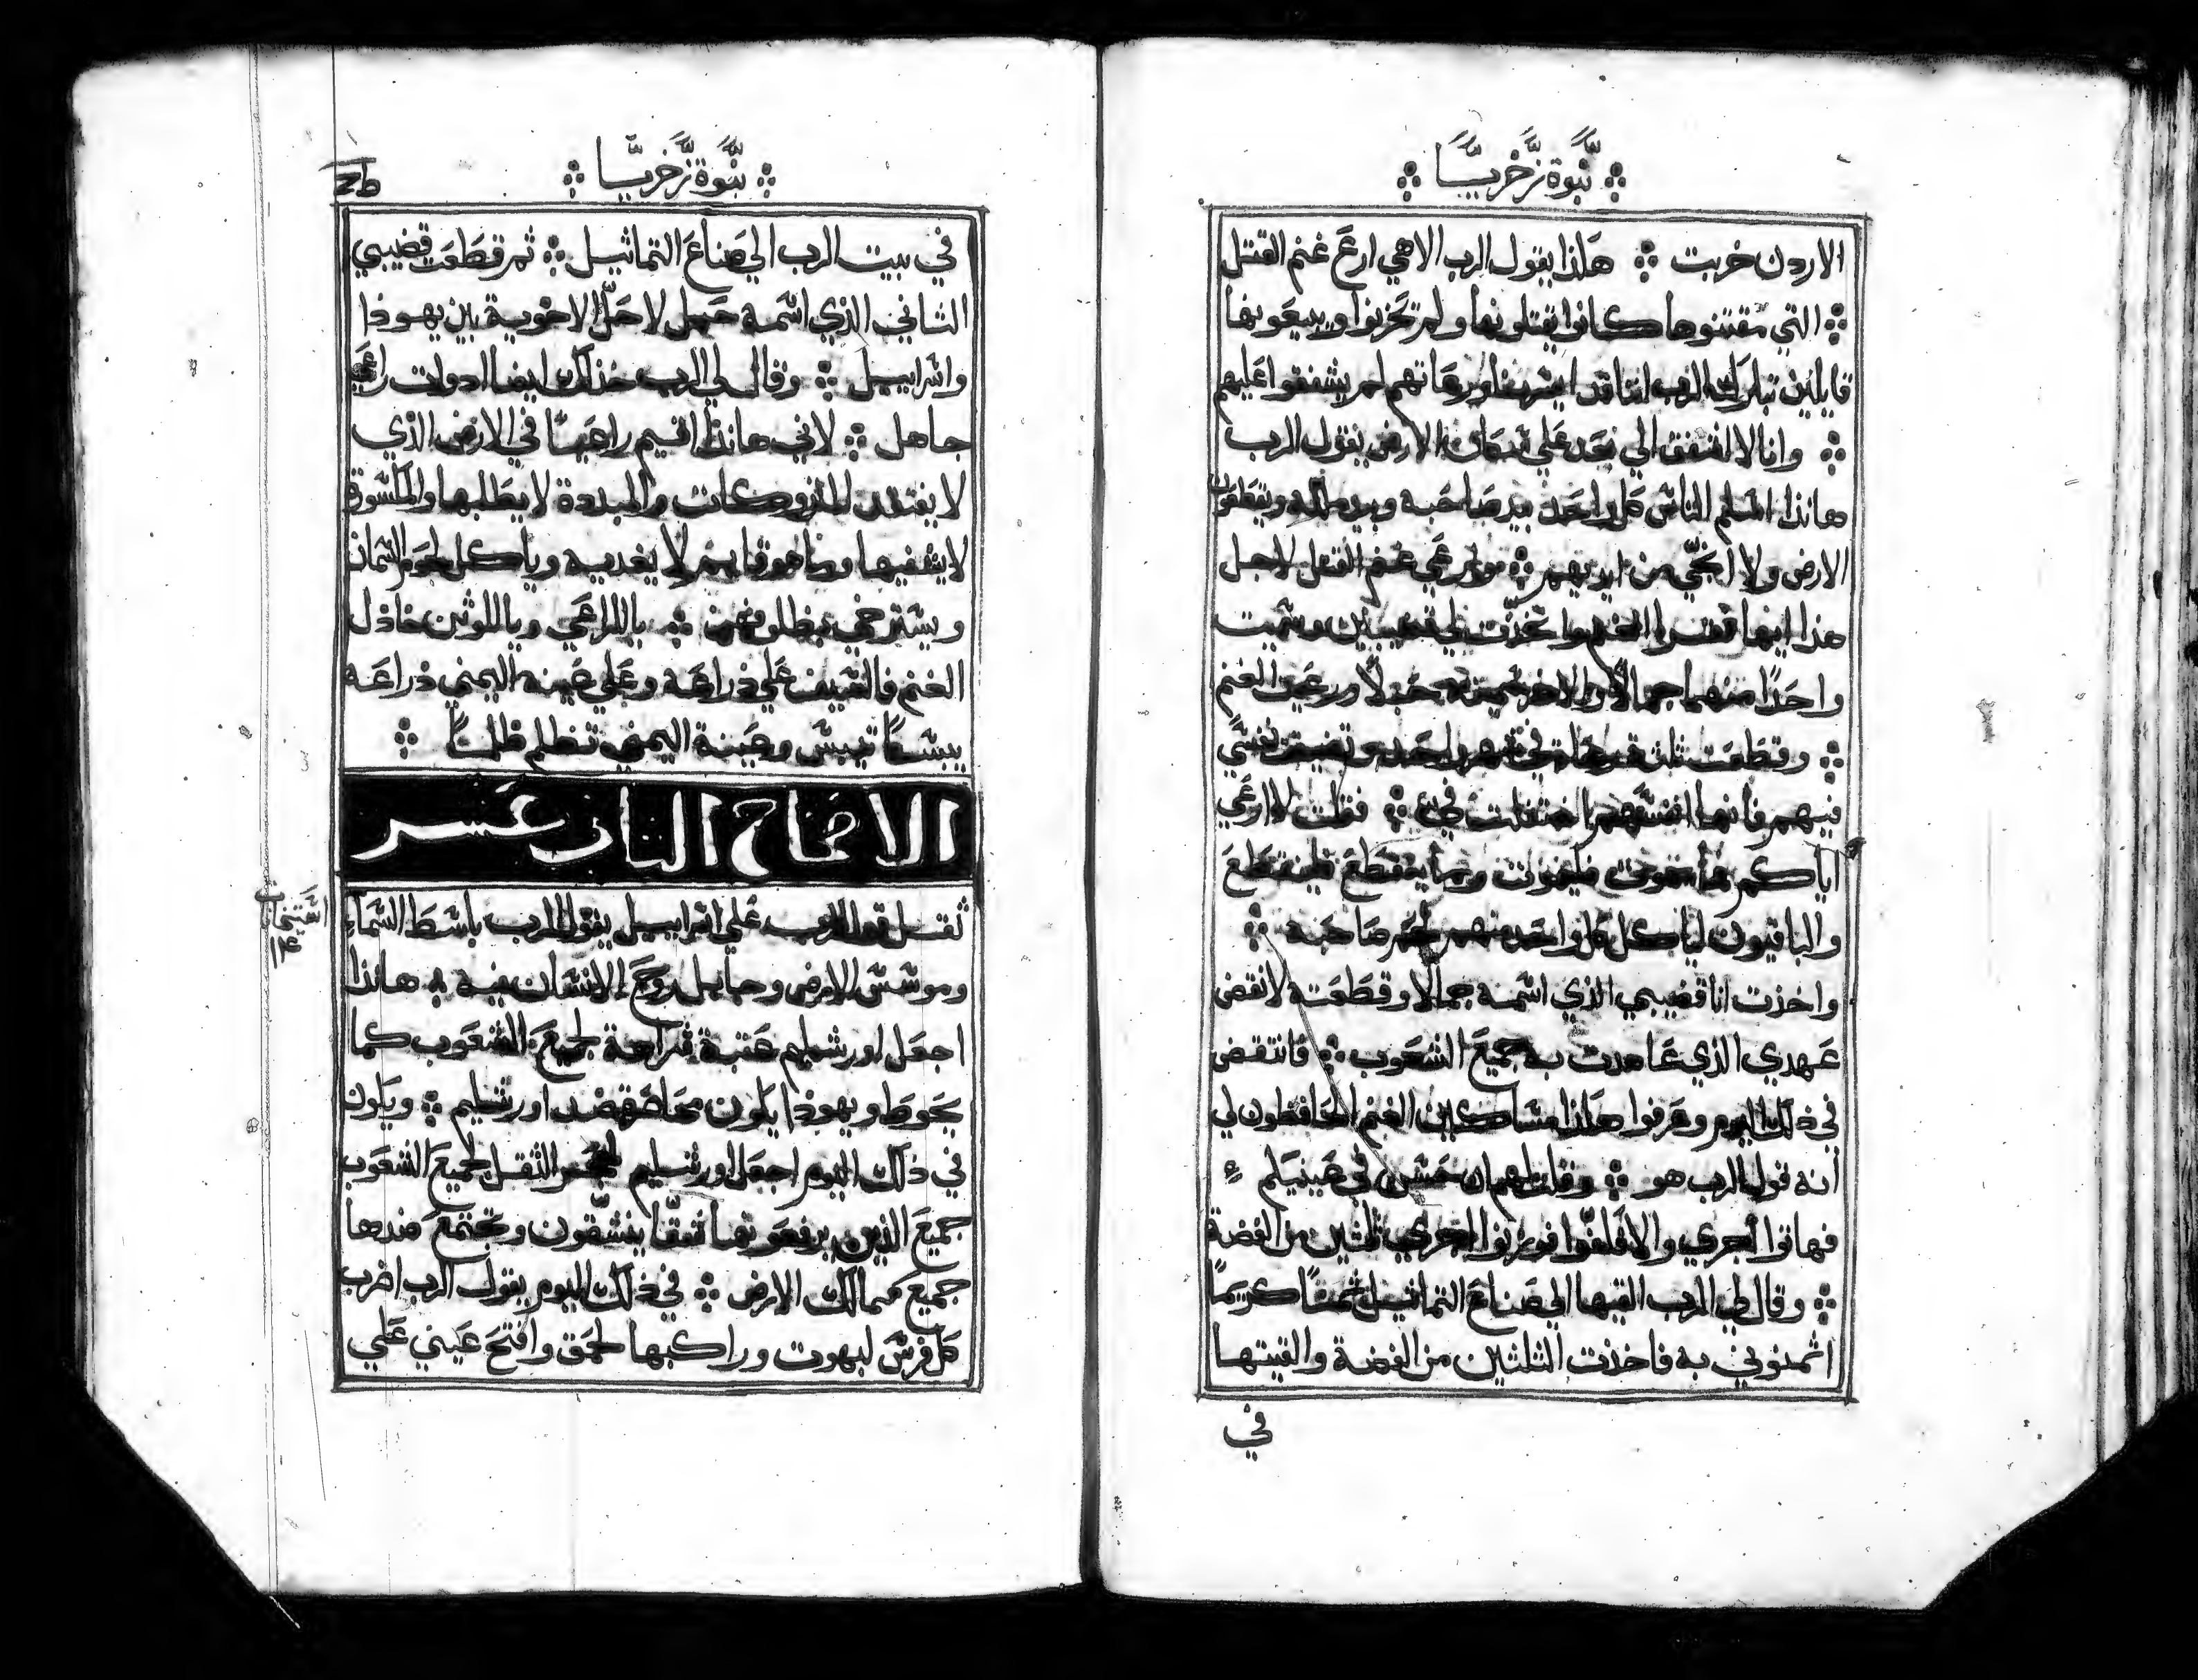 نبوة زخريا
الاردن خربت هكذا يقول الرب الاهي ارع غنم القتل
التي مقتنوها كانوا يقتلونها ولم تحزنوا ويبيعونها
قايلين تبارك الرب اننا قد ورعاتهم لم يشفقوا عليهم
وانا لا اشفق الي بعد علي سكان الارض يقول الرب
هانذا اسلم الناس كل واحد بيد صاحبه وبيد ملكه ويقطعون
الارض ولا انجّي من ايديهم غنم القتل لاجل
هذا ايها فقرا الغنم واتخذت لي قضيبين وسميت
واحدًا منهما جمالًا والاخر سميته حبلًا ورعيت الغنم
وقطعت ثلث في شهر واحد نفسي
فيهم فانما انفسهم فيّ فقلت لا ارعي
اياكم فليموت وما يقتطع فليقتطع
والباقيون لياكل كل واحد منهم لحم صاحبه
واخذت انا قضيبي الذي اسمه جمالا وقطعته لانقض
عهدي الذي عاهدت به جميع الشعوب فانتقض
في ذلك اليوم وعرفوا هكذا مساكين الغنم الحافظون لي
انه قول الرب هو وقلت لهم ان حسن في عينيكم
فهاتوا اجري والا فوزنوا اجري ثلثين من الفضة
وقال لي الرب القيها الي صناع التماثيل ثمنًا كريمًا
اثمنوني به فاخذت الثلثين من الفضة والقيتها
في
نبوة زخريا
في بيت الرب الي صناع التماثيل ثم قطعت قضيبي
الثاني الذي اسمه حبل لاحلّ الاخوية بين يهوذا
واسراييل وقال لي الرب خذ لك ايضا ادوات راعي
جاهل لاني هانذا اقيم راعيًا في الارض الذي
لا يفتقد المتروكات والمبددة لا يطلبها والمكسورة
لا يشفيها وما هو قايم لا يغذيه وياكل لحوم السمان
ويسترخي باللراعي وباللوثن خاذل
الغنم فالسيف علي ذراعه وعلي عينه اليمني ذراعه
يبسًا تيبس وعينه اليمني تظلم ظلمًا
الاصحاح الثاني عشر
ثقل قول الرب علي اسراييل يقول الرب باسط السماء
وموسس الارض وجابل روح الانسان فيه هانذا
اجعل اورشليم عتبة لجميع الشعوب كما
بحوط ويهوذا يكون ضد اورشليم ويكون
في ذلك اليوم اجعل اورشليم الثقل لجميع الشعوب
جميع الذين يرفعونها شقّا ينشقّون وتجتمع ضدها
جميع ممالك الارض في ذلك اليوم يقول الرب اضرب
كل فرس لبهوت وراكبها لحمق وافتح عيني علي